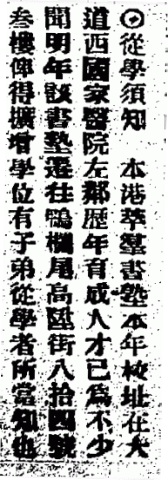 ◎從學須知　本港萃羣書塾本年校址在大
道西國家醫院左鄰歷年育成人才已為不少
聞明年該書塾遷往鴨欄尾高陞街八拾四號
叁樓俾得擴增學位有子弟從學者所當知也